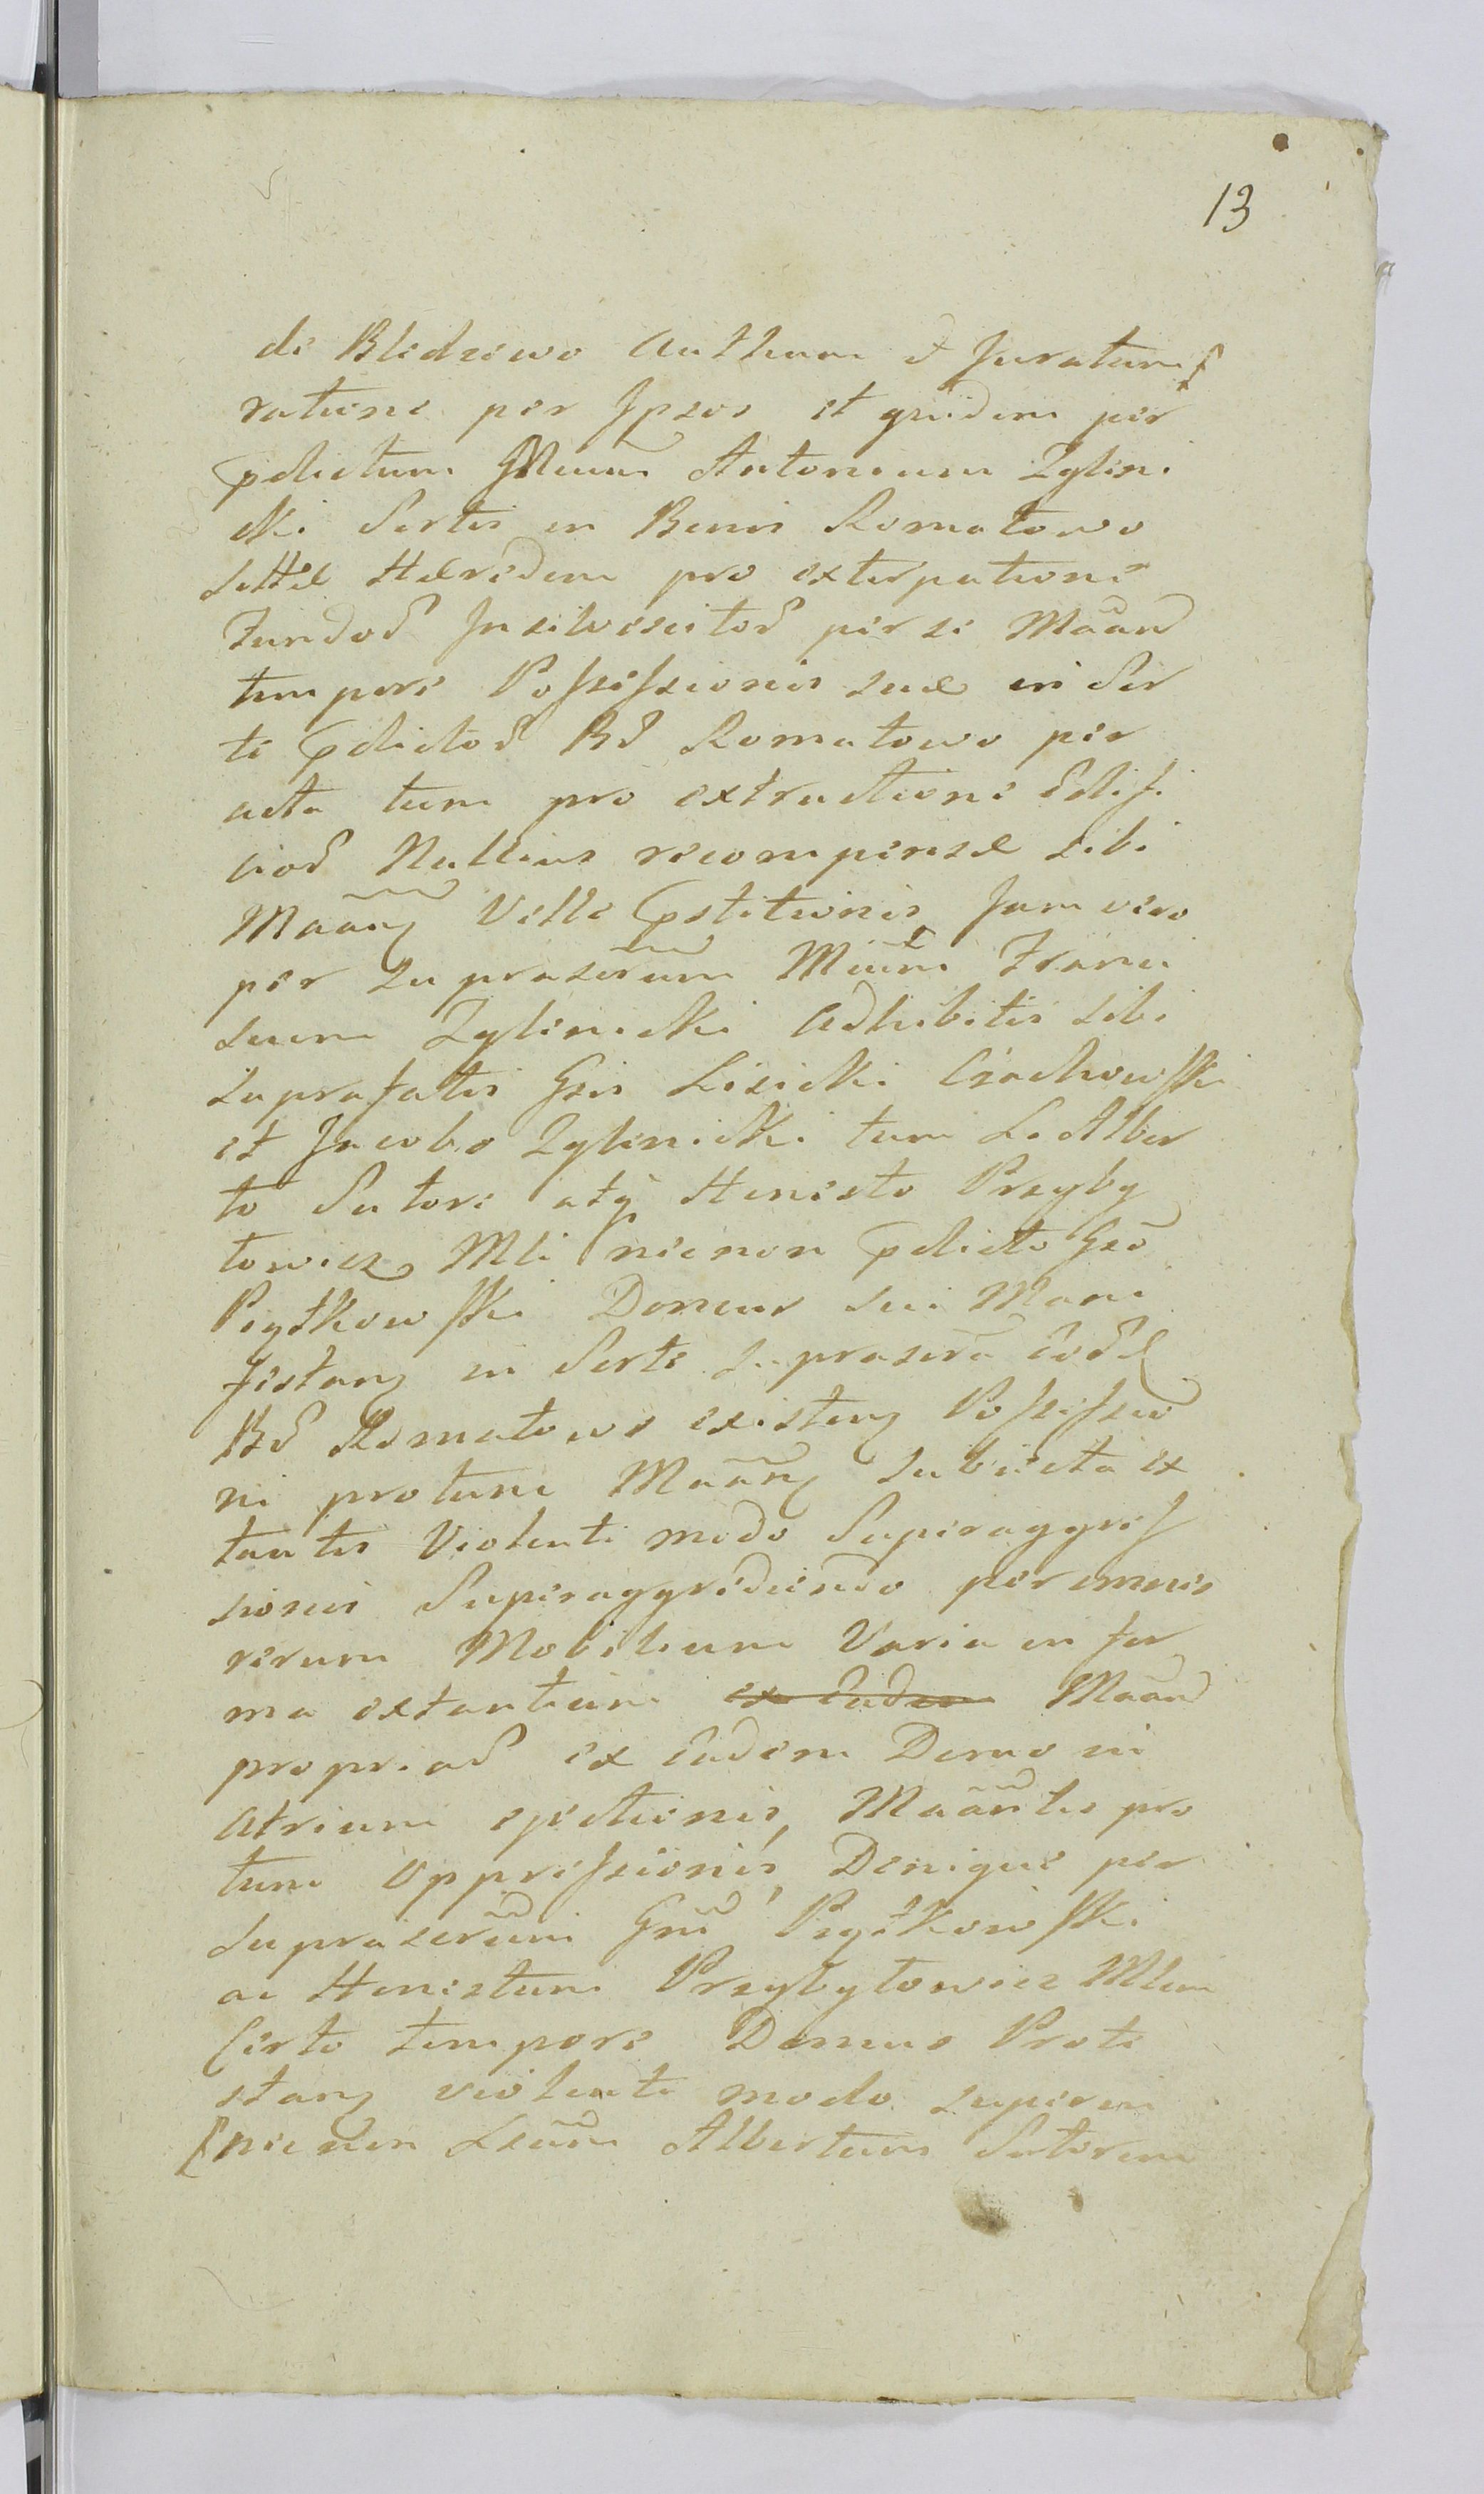 13
de Bledzewo Authum & Juratum
ratione per Ipsos et quidem per
pdictum GMcum Antonium Zylin
cki Sortis in Bonis Romatowo
sittæ Hæredem pro extirpatione
Fundoȓ Insilvescitoȓ per se Maand
tempore Possessionis suæ in Sor
te pdictoȓ Bȓ Romatowo per
acta tum pro extructione Ædifi
cioȓ Nullius recompensæ sibi
Maanq Velle pstitionis Jam vero
per suprascrum Mcum Franci
scum Zylinicki Adhibitis sibi
suprafatis Gsis Lisicki Czachowski
et Jacobo Zylinicki tum L Alber
to Sutore atq Honesto Przyby
towicz Mli necnon pdicto Gso
Piątkowski Domus sui Mani
festanq in Sorte suprascra Eoȓd
Bȓ Romatowo existenq Possessio
ni protunc Maanq subjecta ex
tantis Violenti modo Superaggres
sionis Superaggrediendo per omnis
rerum Mobilium Varia in for
ma extantium ex Eadem Maand
propriaȓ ex Eadem Domo in
Atrium ejectionis, Maantis pro
tunc Oppressionis, Denique per
suprascrum Gnu Piątkowski
ac Honestum Przybytowicz Mlem
Certo tempore Domus Prote
stanq violenti modo superven
necnon Lsum Albertum Sutorem